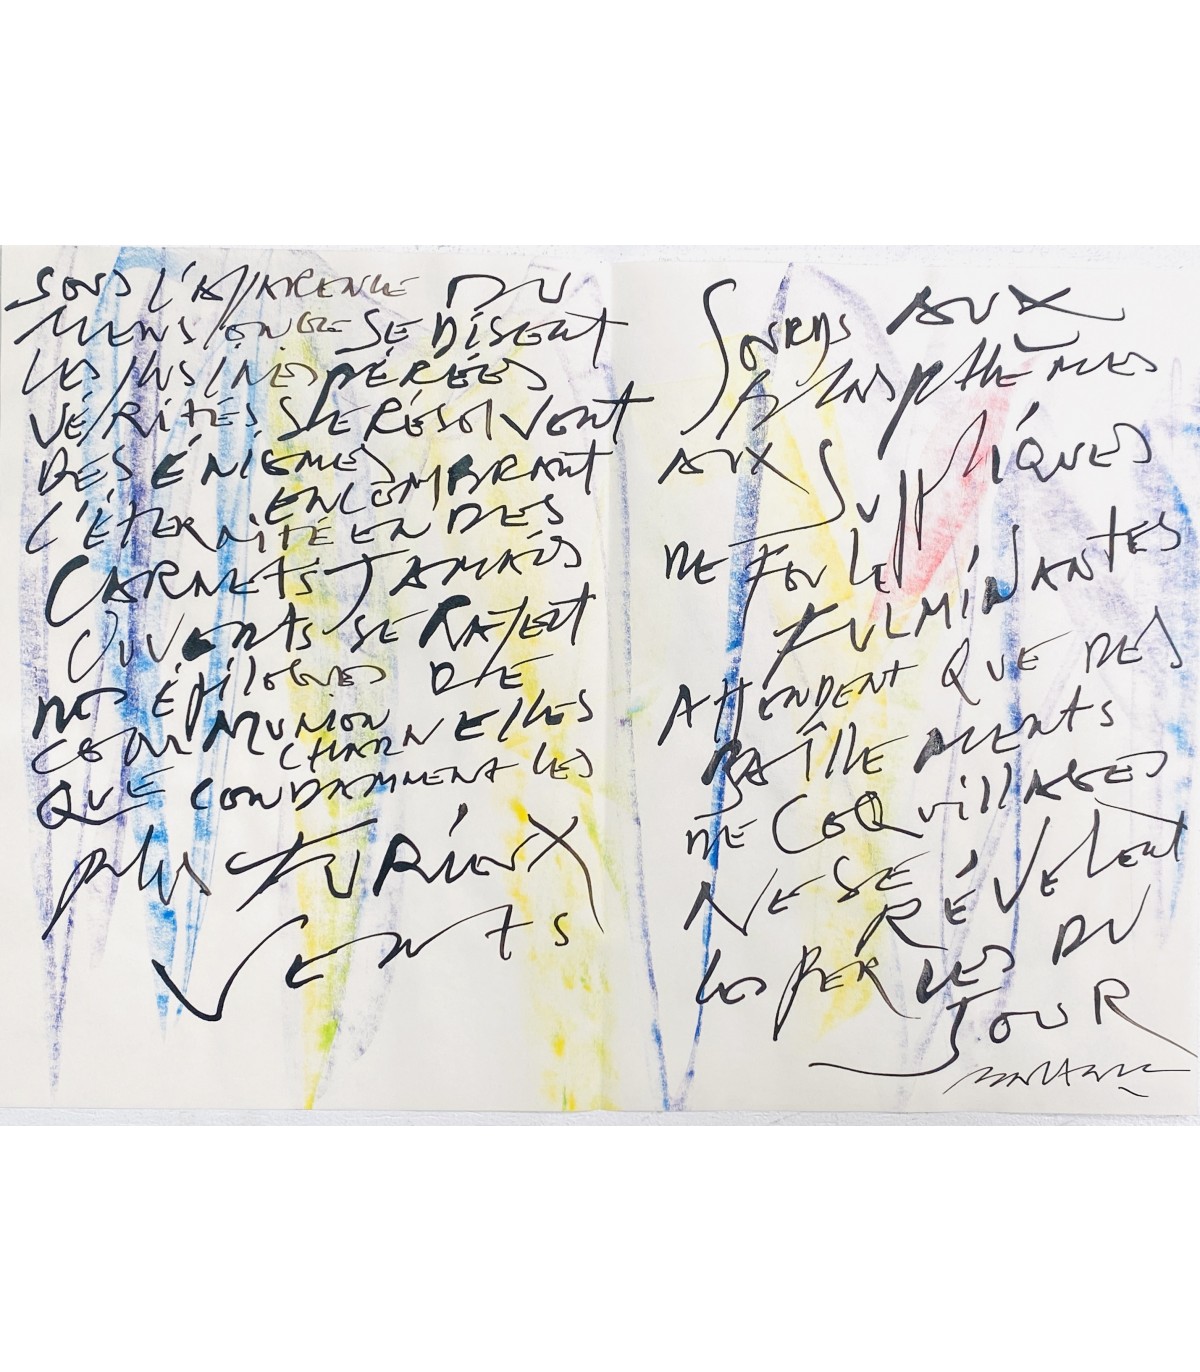 SOUS L'APPARENCE DU
MENSONGE SE DISENT
LES INSINESPÉRÉES
VÉRITÉS SE RÉSOLVENT
DES ÉNIGMES
ENCOMBRANT
L'ÉTERNITÉ EN DES
CARNETS JAMAIS
OUVERTS SERAIENT
NOS ÉPILOGUES DE
COMMUNION
CHARNELLES
QUE CONDAMNENT LES
PLUS FURIEUX
VENTS
SOURDS AUX
BLASPHÈMES
AUX SUPPLIQUES
DE FOULES
FULMINANTES
ATTENDENT QUE DES
BÂILLEMENTS
DE COQUILLAGES
NE SE
RÉVÈLENT
LES PERLES DU
JOUR